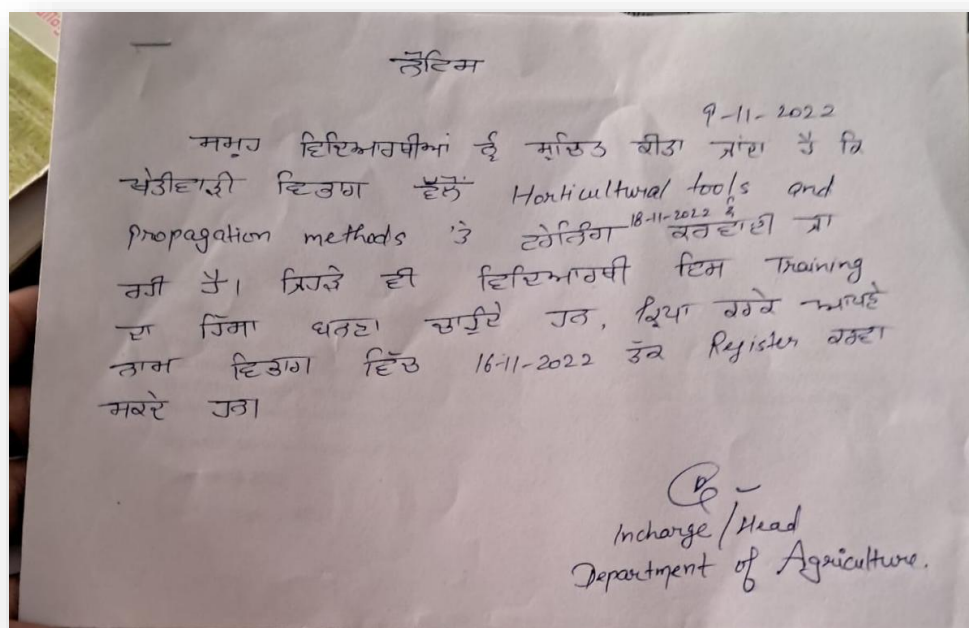 ਨੋਟਿਸ
9-11-2022
ਸਮੂਹ ਵਿਦਿਆਰਥੀਆਂ ਨੂੰ ਸੂਚਿਤ ਕੀਤਾ ਜਾਂਦਾ ਹੈ ਕਿ
ਖੇਤੀਬਾੜੀ ਵਿਭਾਗ ਵੱਲੋਂ Horticultural tools and
Propagation methods 'ਤੇ ਟਰੇਨਿੰਗ 18-11-2022 ਨੂੰ ਕਰਵਾਈ ਜਾ
ਰਹੀ ਹੈ। ਜਿਹੜੇ ਵੀ ਵਿਦਿਆਰਥੀ ਇਸ Training
ਦਾ ਹਿੱਸਾ ਬਨਣਾ ਚਾਹੁੰਦੇ ਹਨ, ਕ੍ਰਿਪਾ ਕਰਕੇ ਆਪਣੇ
ਨਾਮ ਵਿਭਾਗ ਵਿੱਚ 16-11-2022 ਤੱਕ Register ਕਰਵਾ
ਸਕਦੇ ਹਨ।
Incharge/Head
Department of Agriculture.